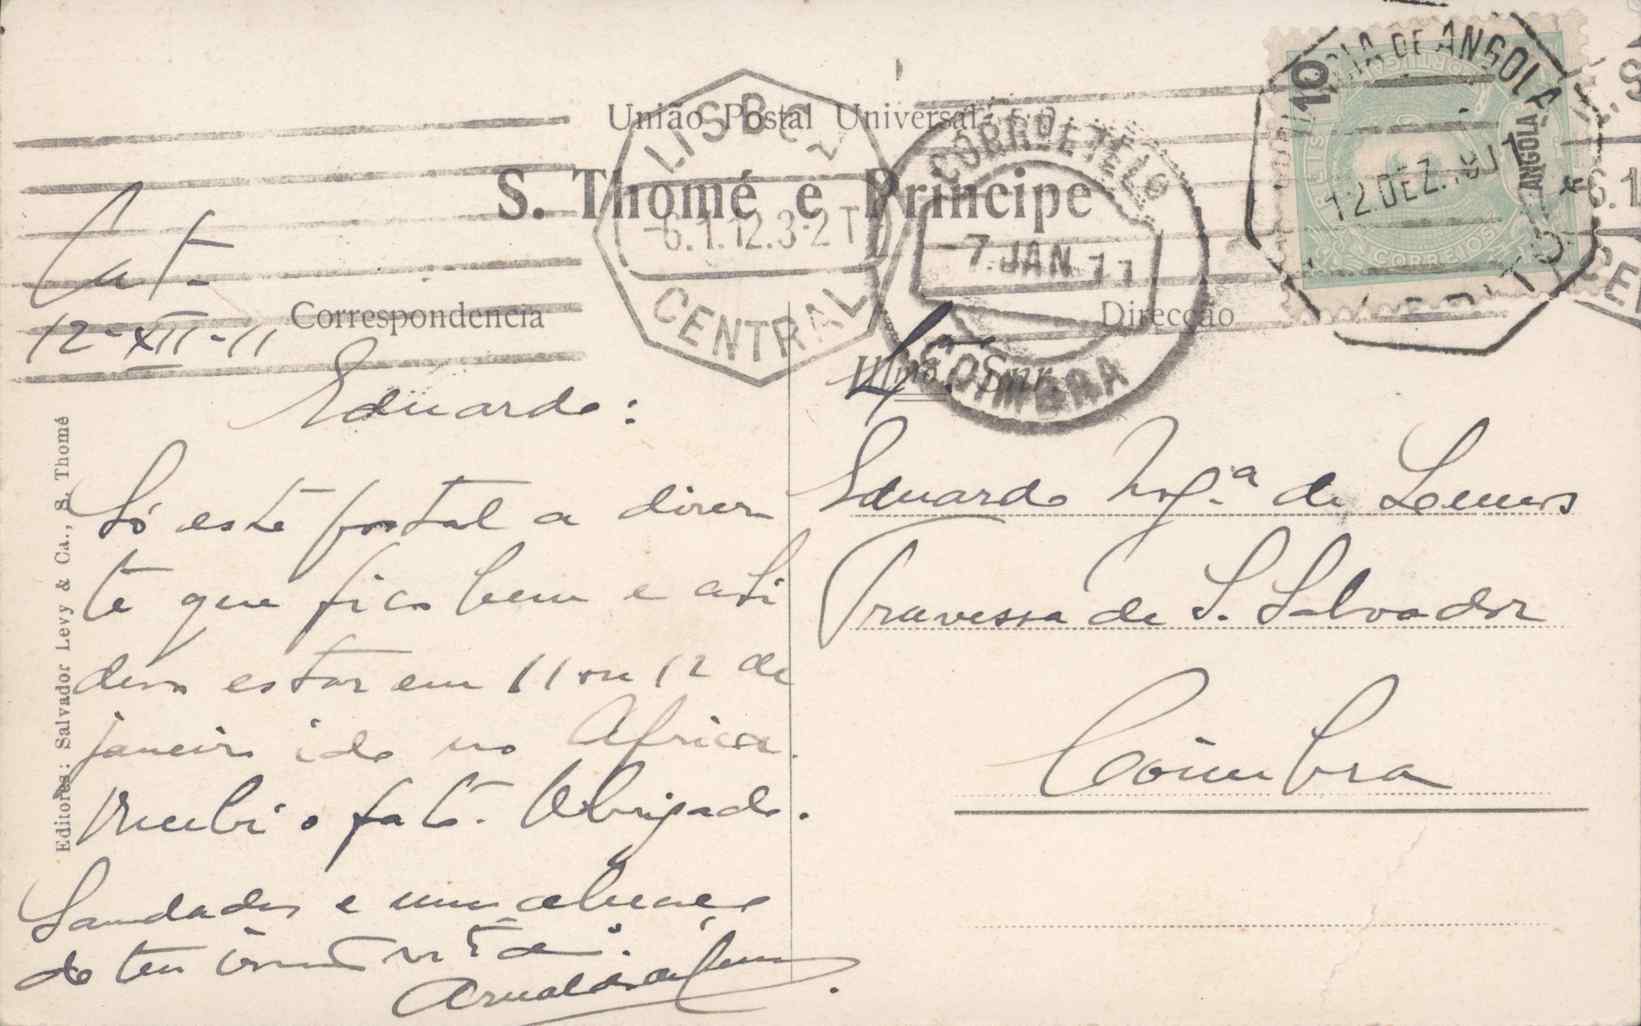 União Postal Universal
S. Thomé e Principe
Correspondencia
Direcção
LISBOA
-6.1.12.3-2T
CENTRAL
CORR. E TELO
-7.JAN.11
COIMBRA
10
CORREIOS
DE ANGOLA
ANGOLA
12.DEZ.1911
12-XII-11
Eduardo:
Só este postal a dizer
te que fico bem e ahi
devo estar em 11 ou 12 de
janeiro ido na Africa.
Recebi o fato. Obrigado.
Saudades e um abraço
do teu
Illmo. Snr.
Eduardo de Lemos
Travessa de S. Salvador
Coimbra
Editores: Salvador Levy & Ca., S. Thomé